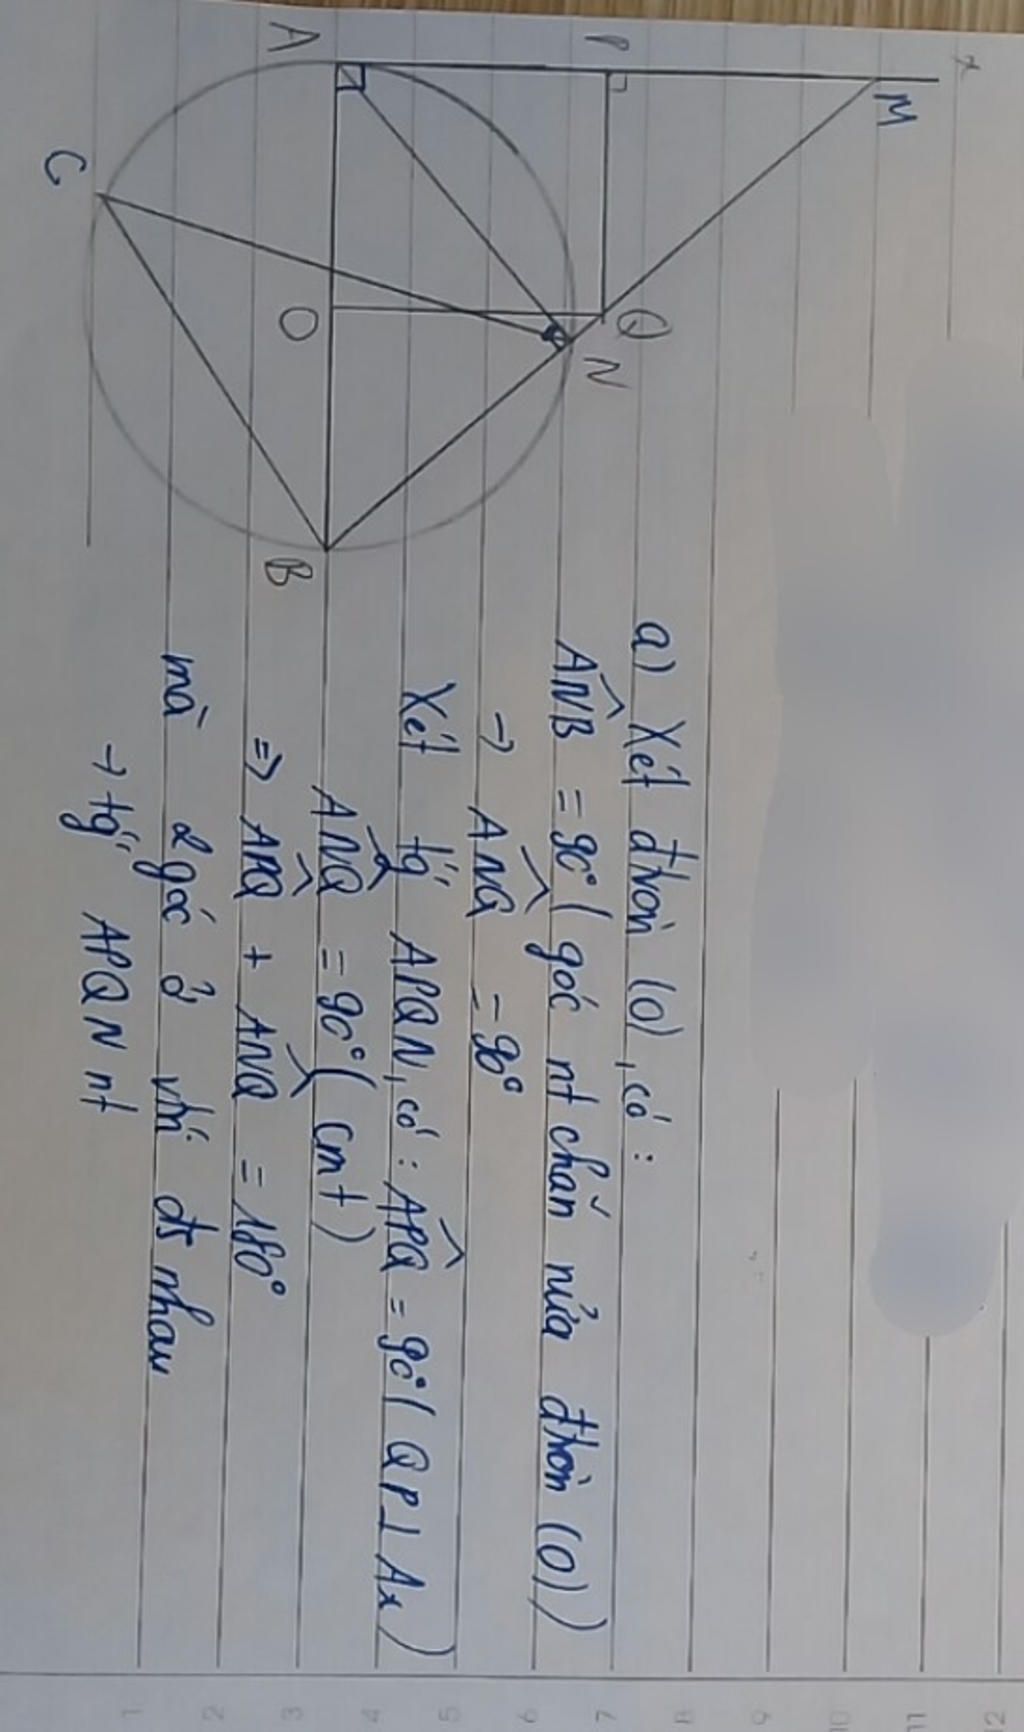 x
M
P
A
Q
N
C
O
B
a) Xét đtròn (O), có :
ANB = 90° ( góc nt chắn nửa đtròn (O) )
→ ANQ = 90°
Xét tg' APQN, có : APQ = 90° ( QP ⊥ Ax )
ANQ = 90° ( cmt )
⇒ APQ + ANQ = 180°
mà 2 góc ở vtrí đ nhau
→ tg' APQN nt
1
2
3
4
5
6
7
8
9
10
11
12